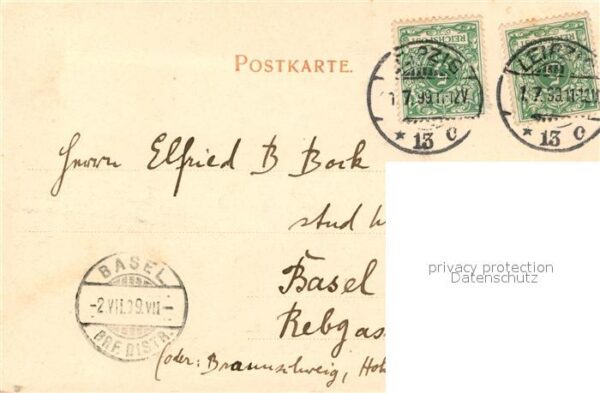 REICHSPOST
LEIPZIG
1.7.99.11-12V
* 13 c
LEIPZIG
1.7.99.11-12V
* 13 c
POSTKARTE.
Herrn Elfried B Bock
stud
Basel
Rebgas
(oder: Braunschweig, Hoh
BASEL
-2.VII.99.VII-
BRF. DISTR.
privacy protection
Datenschutz